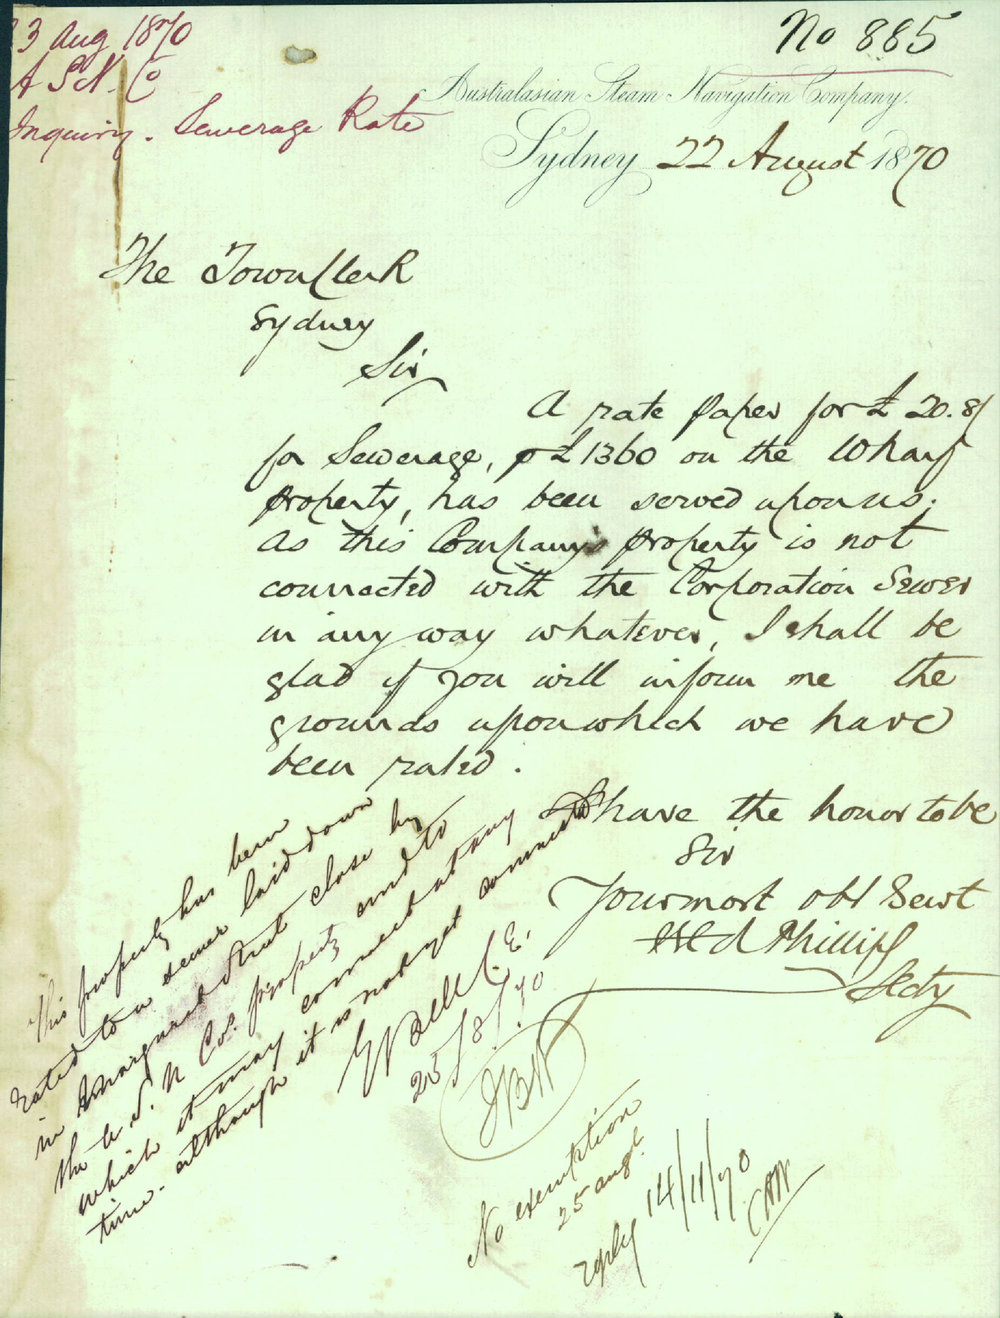 23 Aug 1870
A S N. Co
Inquiry. Sewerage Rate
No 885
Australasian Steam Navigation Company.
Sydney 22 August 1870
The Town Clerk
Sydney
Sir
A rate paper for £20.8/
for Sewerage, p £1360 on the Wharf
property, has been served upon us.
As this Company's property is not
connected with the Corporation Sewer
in any way whatever, I shall be
glad if you will inform me the
grounds upon which we have
been rated.
I have the honor to be
Sir
Your most obt Servt
Phillips
Secty
This property has been
rated to a sewer laid down
in Margaret Street close by
the A. S. N Cos. property and to
which it may connect at any
time. although it is not yet connected
E Bell C. E.
25/8/70
No exemption
25 augt.
reply 14/11/70